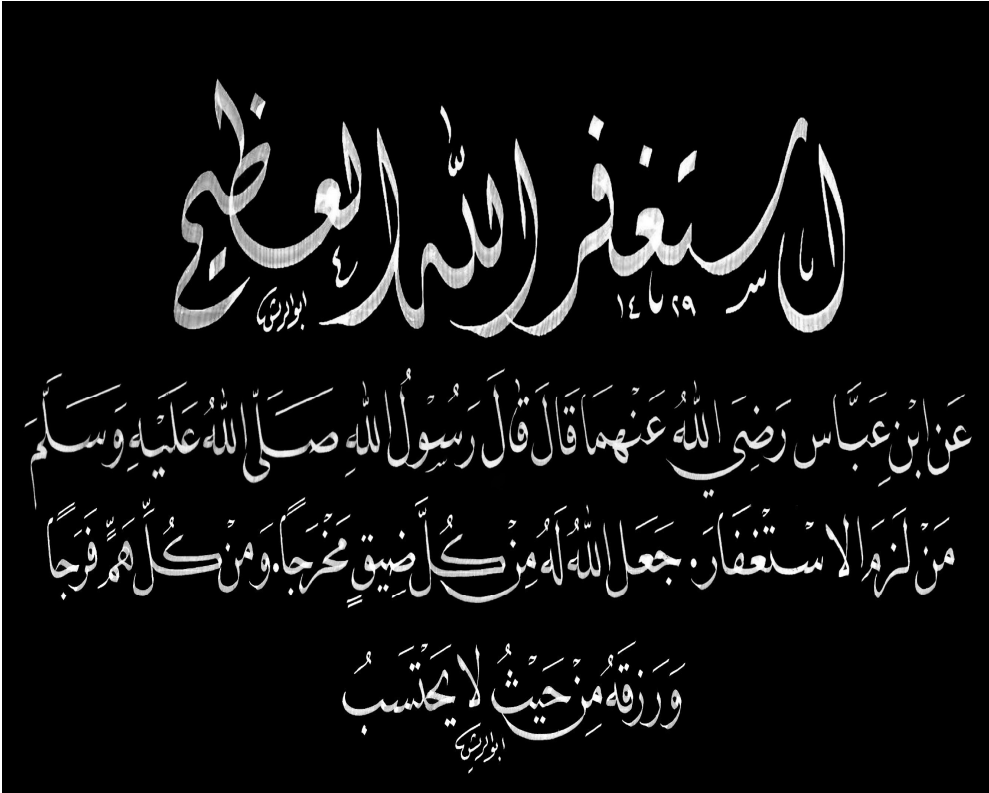 استغفر الله العظيم
ابوالريش ١٤٢٩
عَنِ ابْنِ عَبَّاس رَضِيَ اللهُ عَنْهمَا قَالَ قَالَ رَسُوْلُ اللهِ صَلَّى اللهُ عَلَيْهِ وَسَلَّمَ
مَنْ لَزِمَ الاسْتغْفَارَ. جَعَل اللهُ لَهُ مِنْ كُلَّ ضِيقٍ مَخْرَجاً. وَمنْ كُلِّ هَمٍّ فَرَجًا
وَرَزقَهُ مِنْ حَيْثُ لا يَحْتَسبُ
ابوالريش